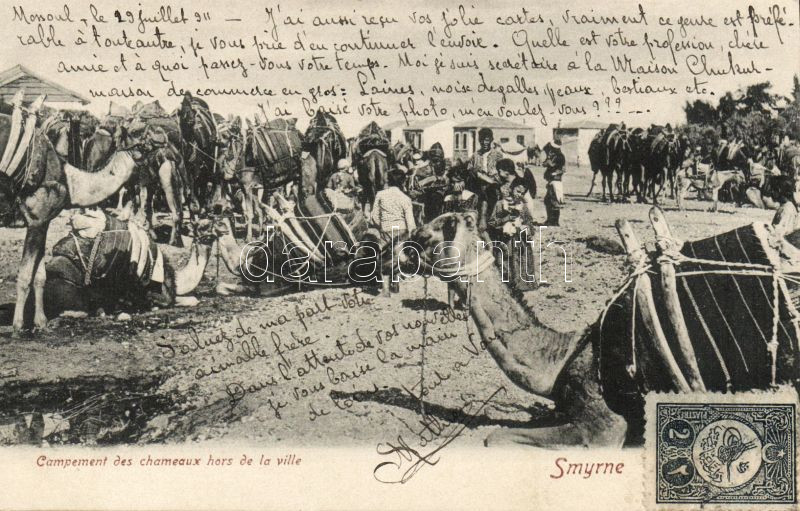 Mossoul, le 29 juillet 911 — J'ai aussi reçu vos jolie cartes, vraiment ce genre est préfé-
rable à tout autre, je vous prie d'en continuer l'envoie. Quelle est votre profession, chère
amie et à quoi passez-vous votre temps. Moi je suis secrétaire a la Maison
maison de commerce en gros: Laines, noise de galles, peaux, bestiaux etc.
J'ai baisé votre photo, m'en voulez-vous ???
darabanth
Saluez de ma part votre
aimable frère.
Dans l'attente de vos nouvelles
je vous baise la main
de loin. Tout à Vous
Campement des chameaux hors de la ville
Smyrne
PIASTRES
2